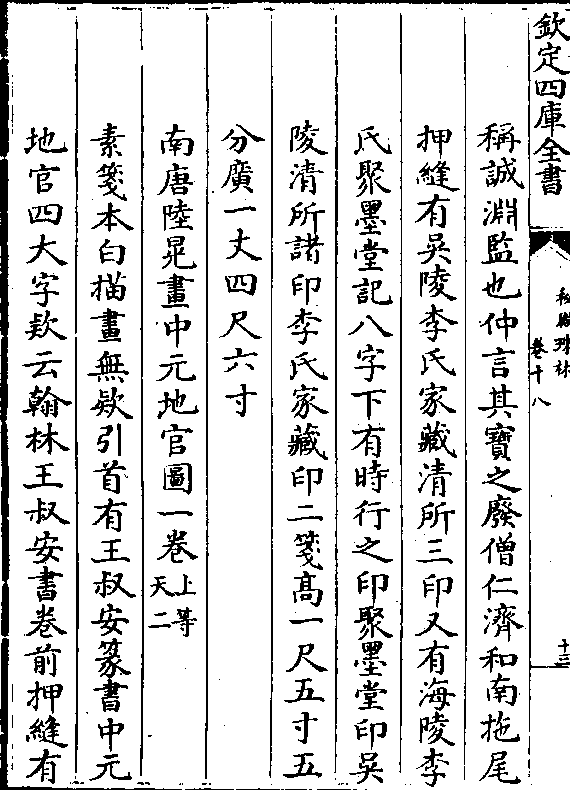 欽定四庫全書
秘殿珠林
卷十八
十三
稱誠淵監也仲言其寳之廢僧仁濟和南拖尾
押縫有吳陵李氏家藏清所三印又有海陵李
氏聚墨堂記八字下有時行之印聚墨堂印吳
陵清所諸印李氏家藏印二箋髙一尺五寸五
分廣一丈四尺六寸
南唐陸晃畫中元地官圖一卷上等天二
素箋本白描畫無欵引首有王叔安篆書中元
地官四大字欵云翰林王叔安書卷前押縫有